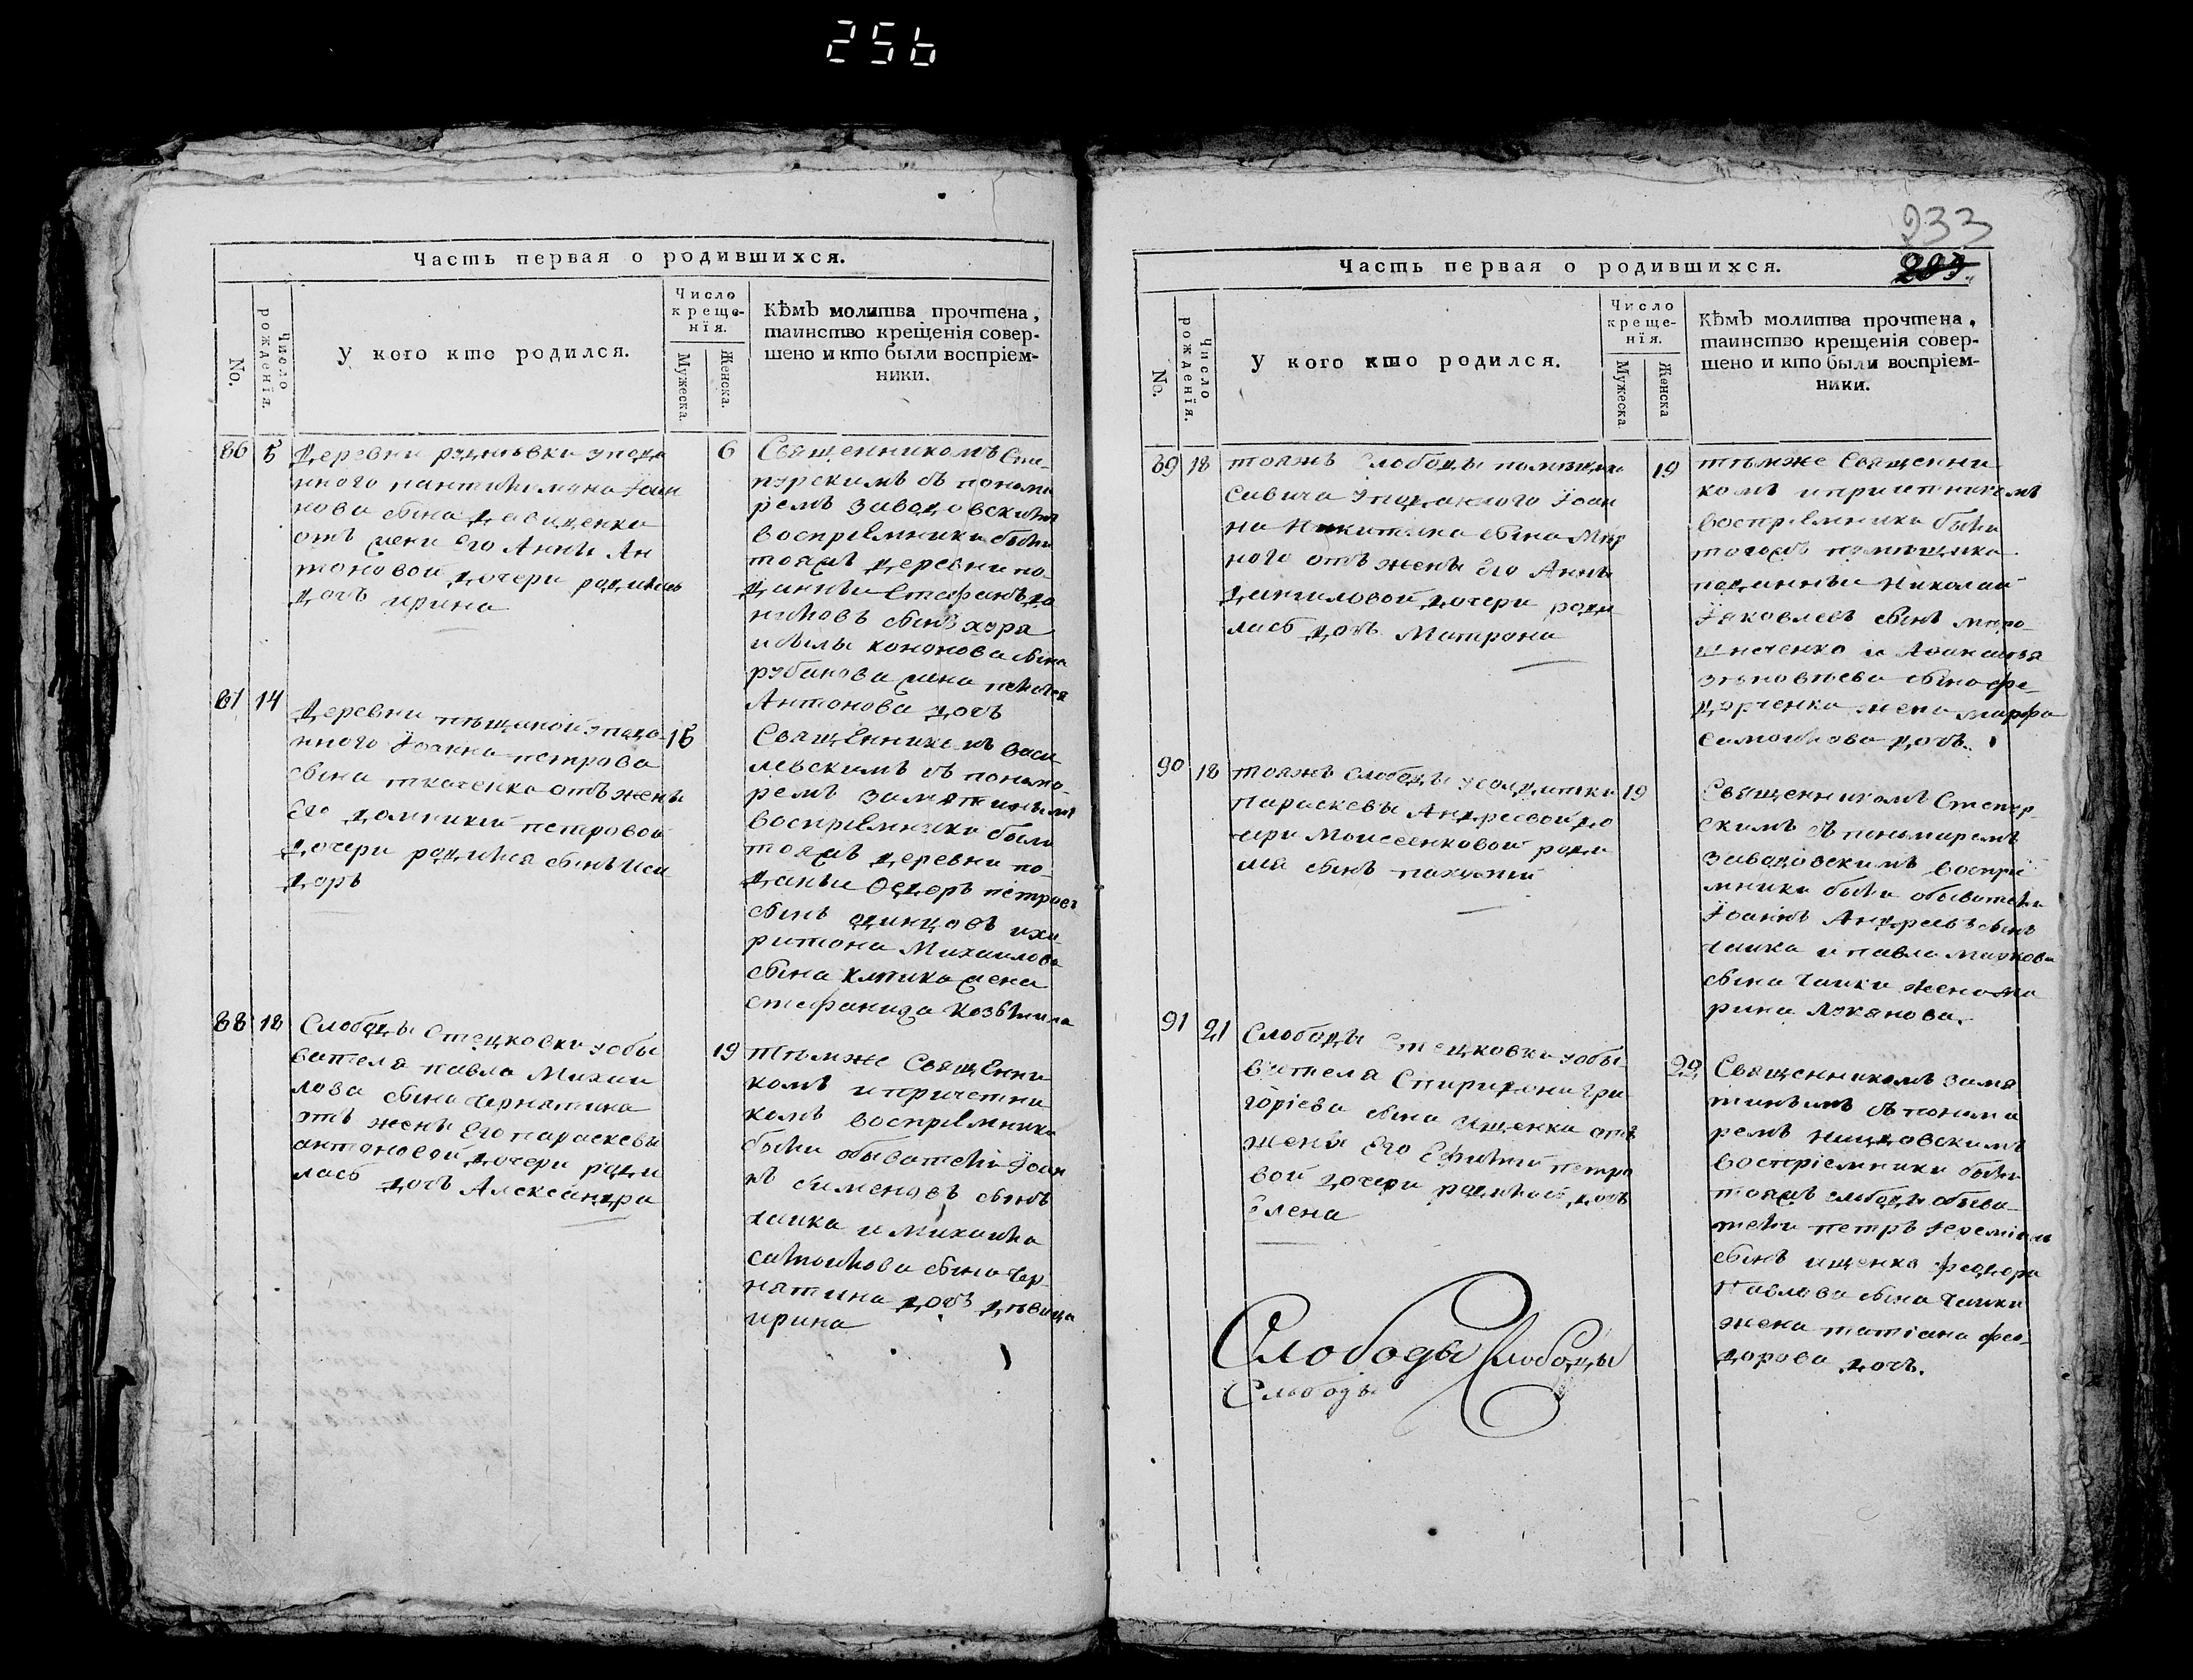 256
Часть первая о родившихся.
No.
Число рожденїя.
У кого кто родился.
Число
креще-
нїя.
Мужеска.
Женска.
Кѣмъ молитва прочтена,
таинство крещенїя совер-
шено и кто были воспрїем-
ники.
86 5 6
Деревни
нова сына
отъ жени Его Анны Ан
тоновой дочери родилась
дочь ирина
Священникомъ
пурскимъ съ понома
ремъ заводовскимъ
воспрїемники были
тояжъ деревни по-
данныи Стефанъ
сынъ
кононова сына
рубанова жена
Антонова дочь
87 14 15
Деревни пѣщаной упода
нного Іоанна петрова
сына ткаченка отъ жены
Его домникіи петровой
дочери родился сынъ Иси
доръ
Священникомъ Васи
левскимъ съ понома-
ремъ замятинымъ
воспрїемники были
тояжъ деревни по-
даныи Федоръ петровъ
сынъ одинцовъ иха
ритона Михаилова
сына жена
стефанида Козьмина
88 18 19
Слободы Стецковки уобы
вателя павла Михаи
лова сына чернатина
отъ жены Его параскевы
антоновой дочери роди
лась дочь Александра
тѣмже Священни
комъ и причетни
комъ воспрїемники
были обыватели Іоан
нъ сименовъ сынъ
чаика и Михаила
самоилова сына чер-
натина дочь дѣвица
ирина
233
209.
Часть первая о родившихся.
No.
Число рожденїя.
У кого кто родился.
Число
креще-
нїя.
Мужеска
Женска
Кѣмъ молитва прочтена,
таинство крещенїя совер-
шено и кто были воспрїем-
ники.
89 18 19
тояжъ Слободы помѣщика
Савича уподанного Іоан
на Никитина сына Мир
ного отъ жены Его Анны
Даниловой дочери роди
лась дочь Матрона
тѣмже Священни
комъ и причетникомъ
воспрїемники были
тогожъ помѣщика
поданныи Николай
Іяковлевъ сынъ
и Афанасья
сына фе-
дорченка жена марфа
самоилова дочь.
90 18 19
тояжъ Слободы усолдатки
Параскевы Андреевой до
чери Моисеенковой роди
лся сынъ пахомій
Священникомъ
скимъ съ пономаремъ
заводовскимъ воспрї
мники были обыватели
Іоаннъ Андреевъ сынъ
чаика и павла маркова
сына чаики жена ма
рина Луканова.
91 21 22
Слободы Стецковки уобы-
вателя Спиридона Гри
горіева сына ищенка отъ
жены Его Евфиміи петро
вой дочери родилась дочь
Елена
Священникомъ замя
тинымъ съ понома
ремъ
воспріемники были
тояжъ слободы обыва-
тели петръ Іереміинъ
сынъ ищенко федора
Павлова сына чаики
жена татіана фео-
дорова дочь.
Слободы Слободы
Слободы